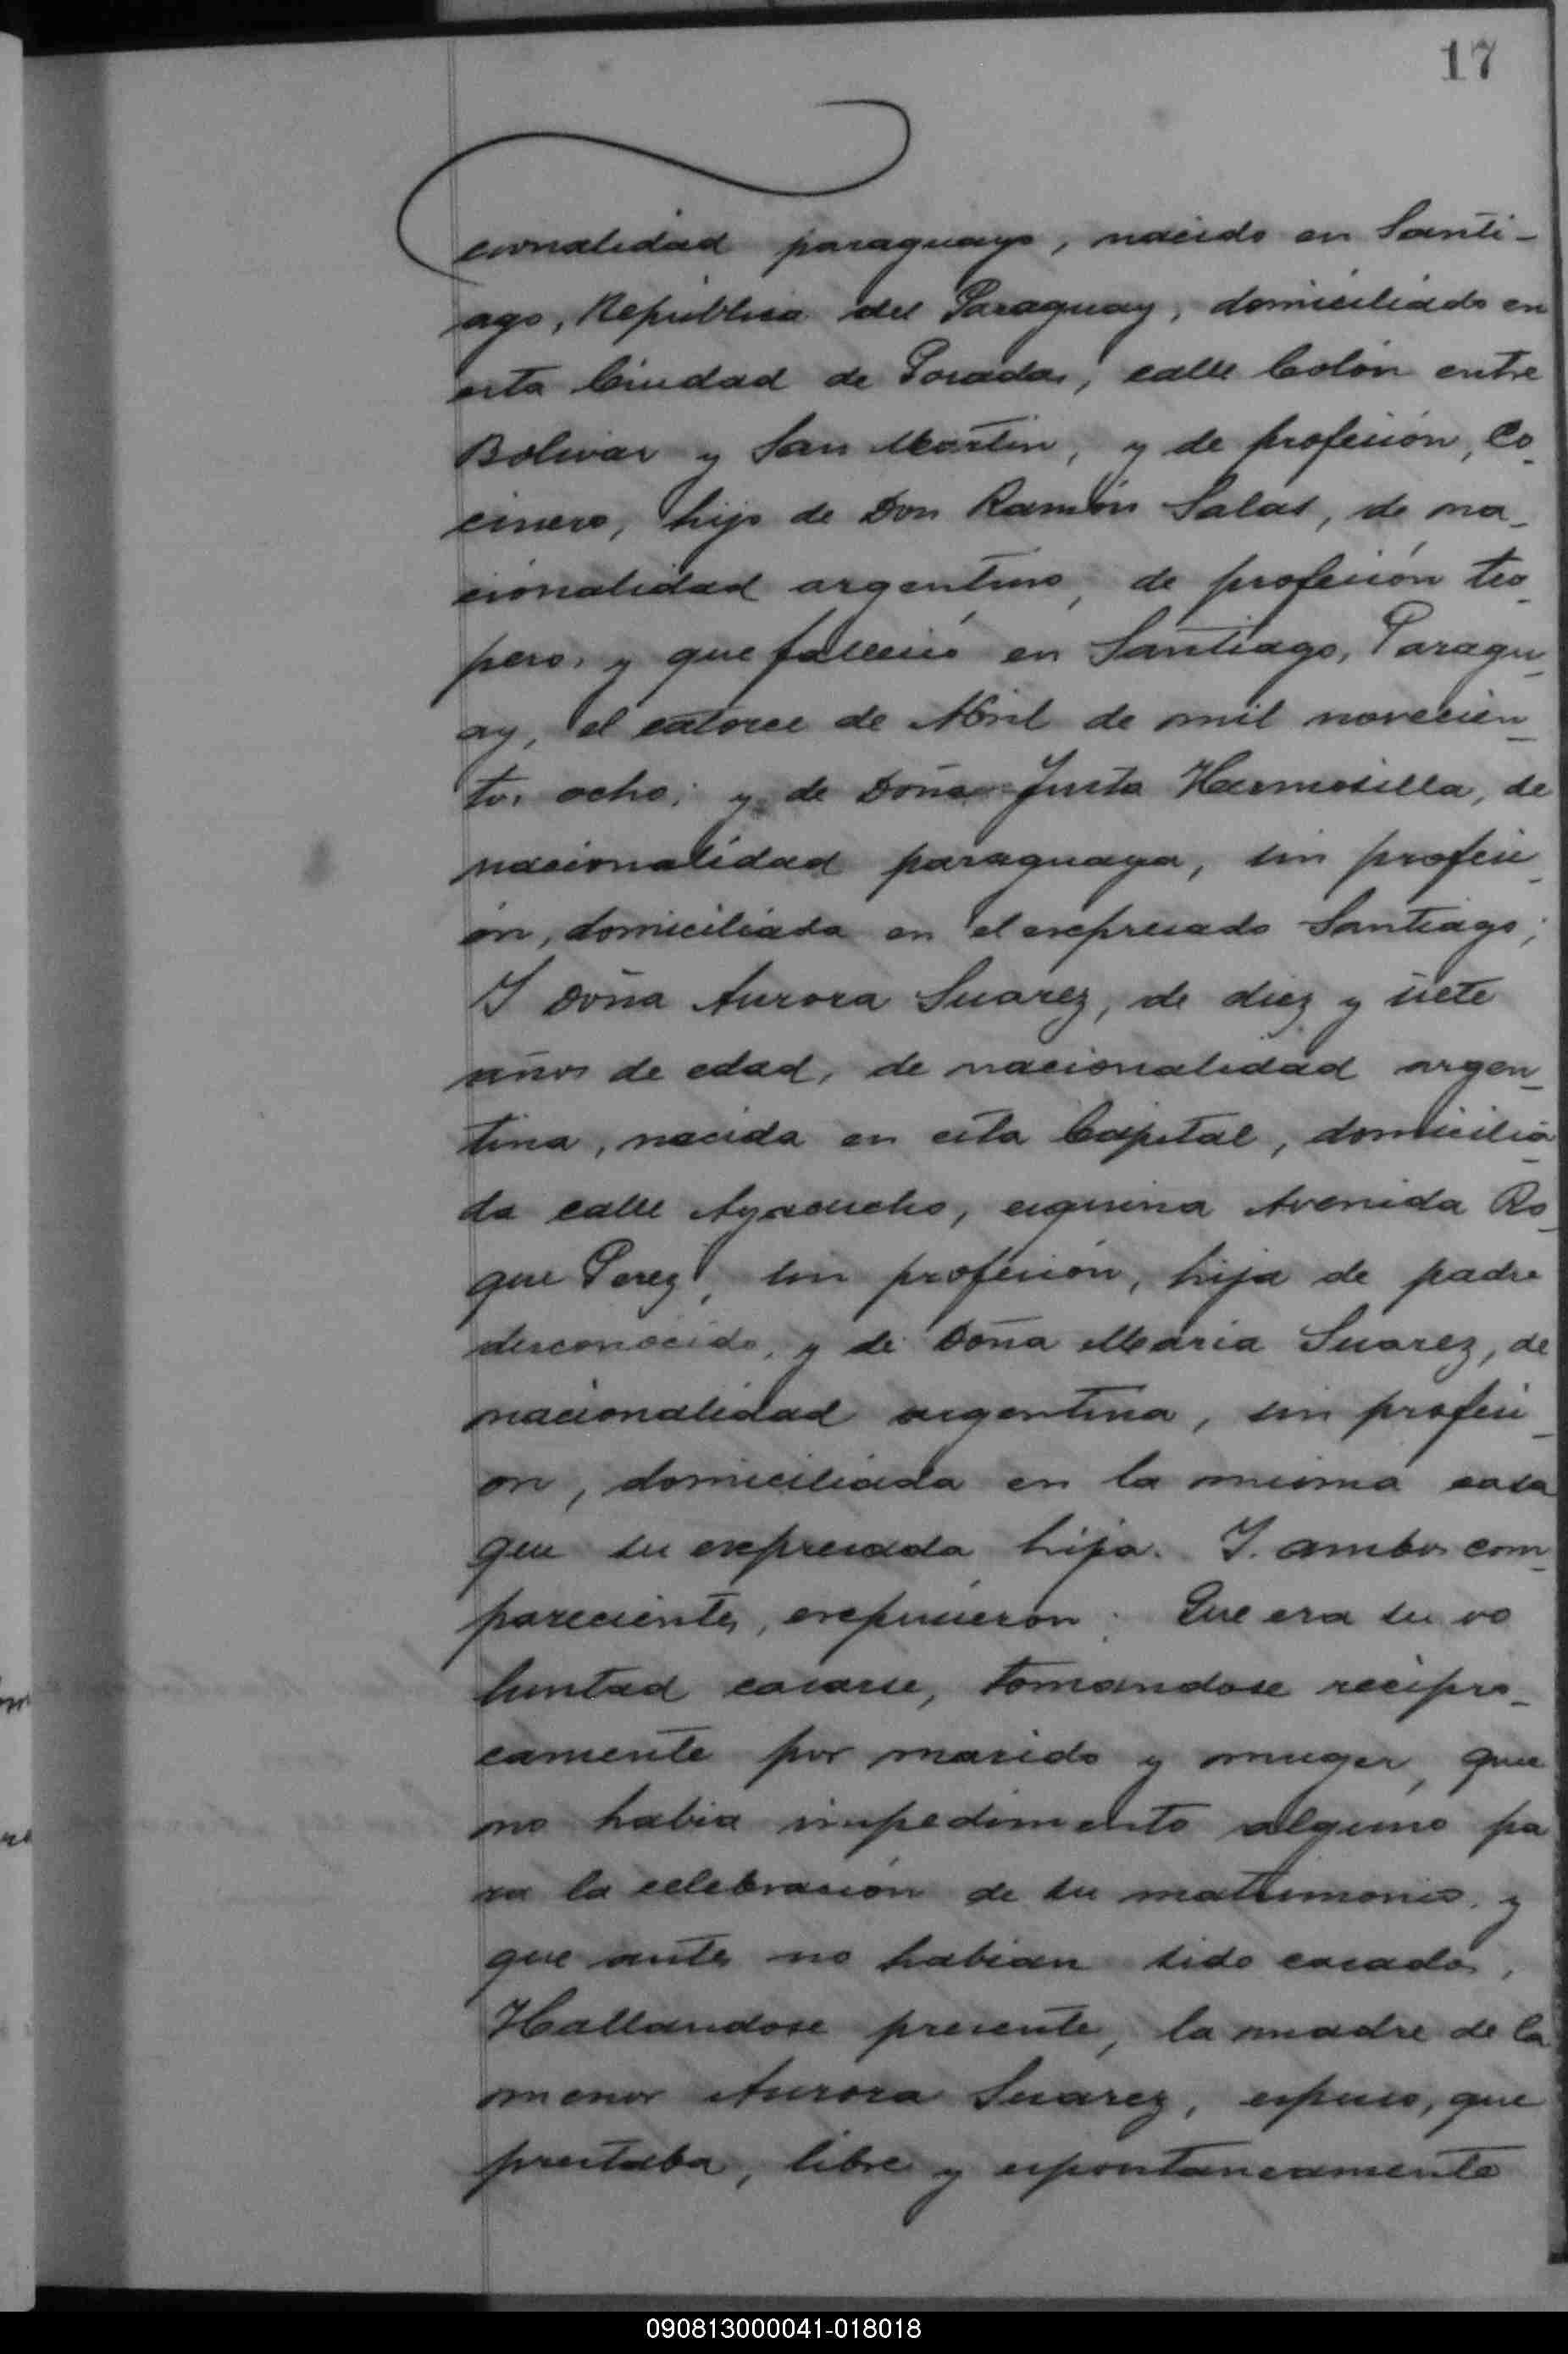 17
cionalidad paraguayo, nacido en Santi-
ago, República del Paraguay, domiciliado en
esta Ciudad de Posadas, calle Colón entre
Bolivar y San Martin, y de profesión, Co-
cinero, hijo de Don Ramón Salas, de na-
cionalidad argentino, de profesión tro-
pero, y que falleció en Santiago, Paragu-
ay, el catorce de Abril de mil novecien-
tos ocho; y de Doña Justa Hermosilla, de
nacionalidad paraguaya, sin profesi-
ón, domiciliada en el expresado Santiago;
Y Doña Aurora Suarez, de diez y siete
años de edad, de nacionalidad argen-
tina, nacida en esta Capital, domicilia-
da calle Ayacucho, esquina Avenida Ro-
que Perez, sin profesión, hija de padre
desconocido, y de Doña Maria Suarez, de
nacionalidad argentina, sin profesi-
on, domiciliada en la misma casa
que su expresada hija. Y. ambos com-
parecientes, expusieron: Que era su vo
luntad casarse, tomandose recipro-
camente por marido y muger, que
no habia impedimento alguno pa
ra la celebración de su matrimonio, y
que antes no habian sido casados,
Hallandose presente, la madre de la
menor Aurora Suarez, espuso, que
prestaba, libre y espontaneamente
090813000041-018018